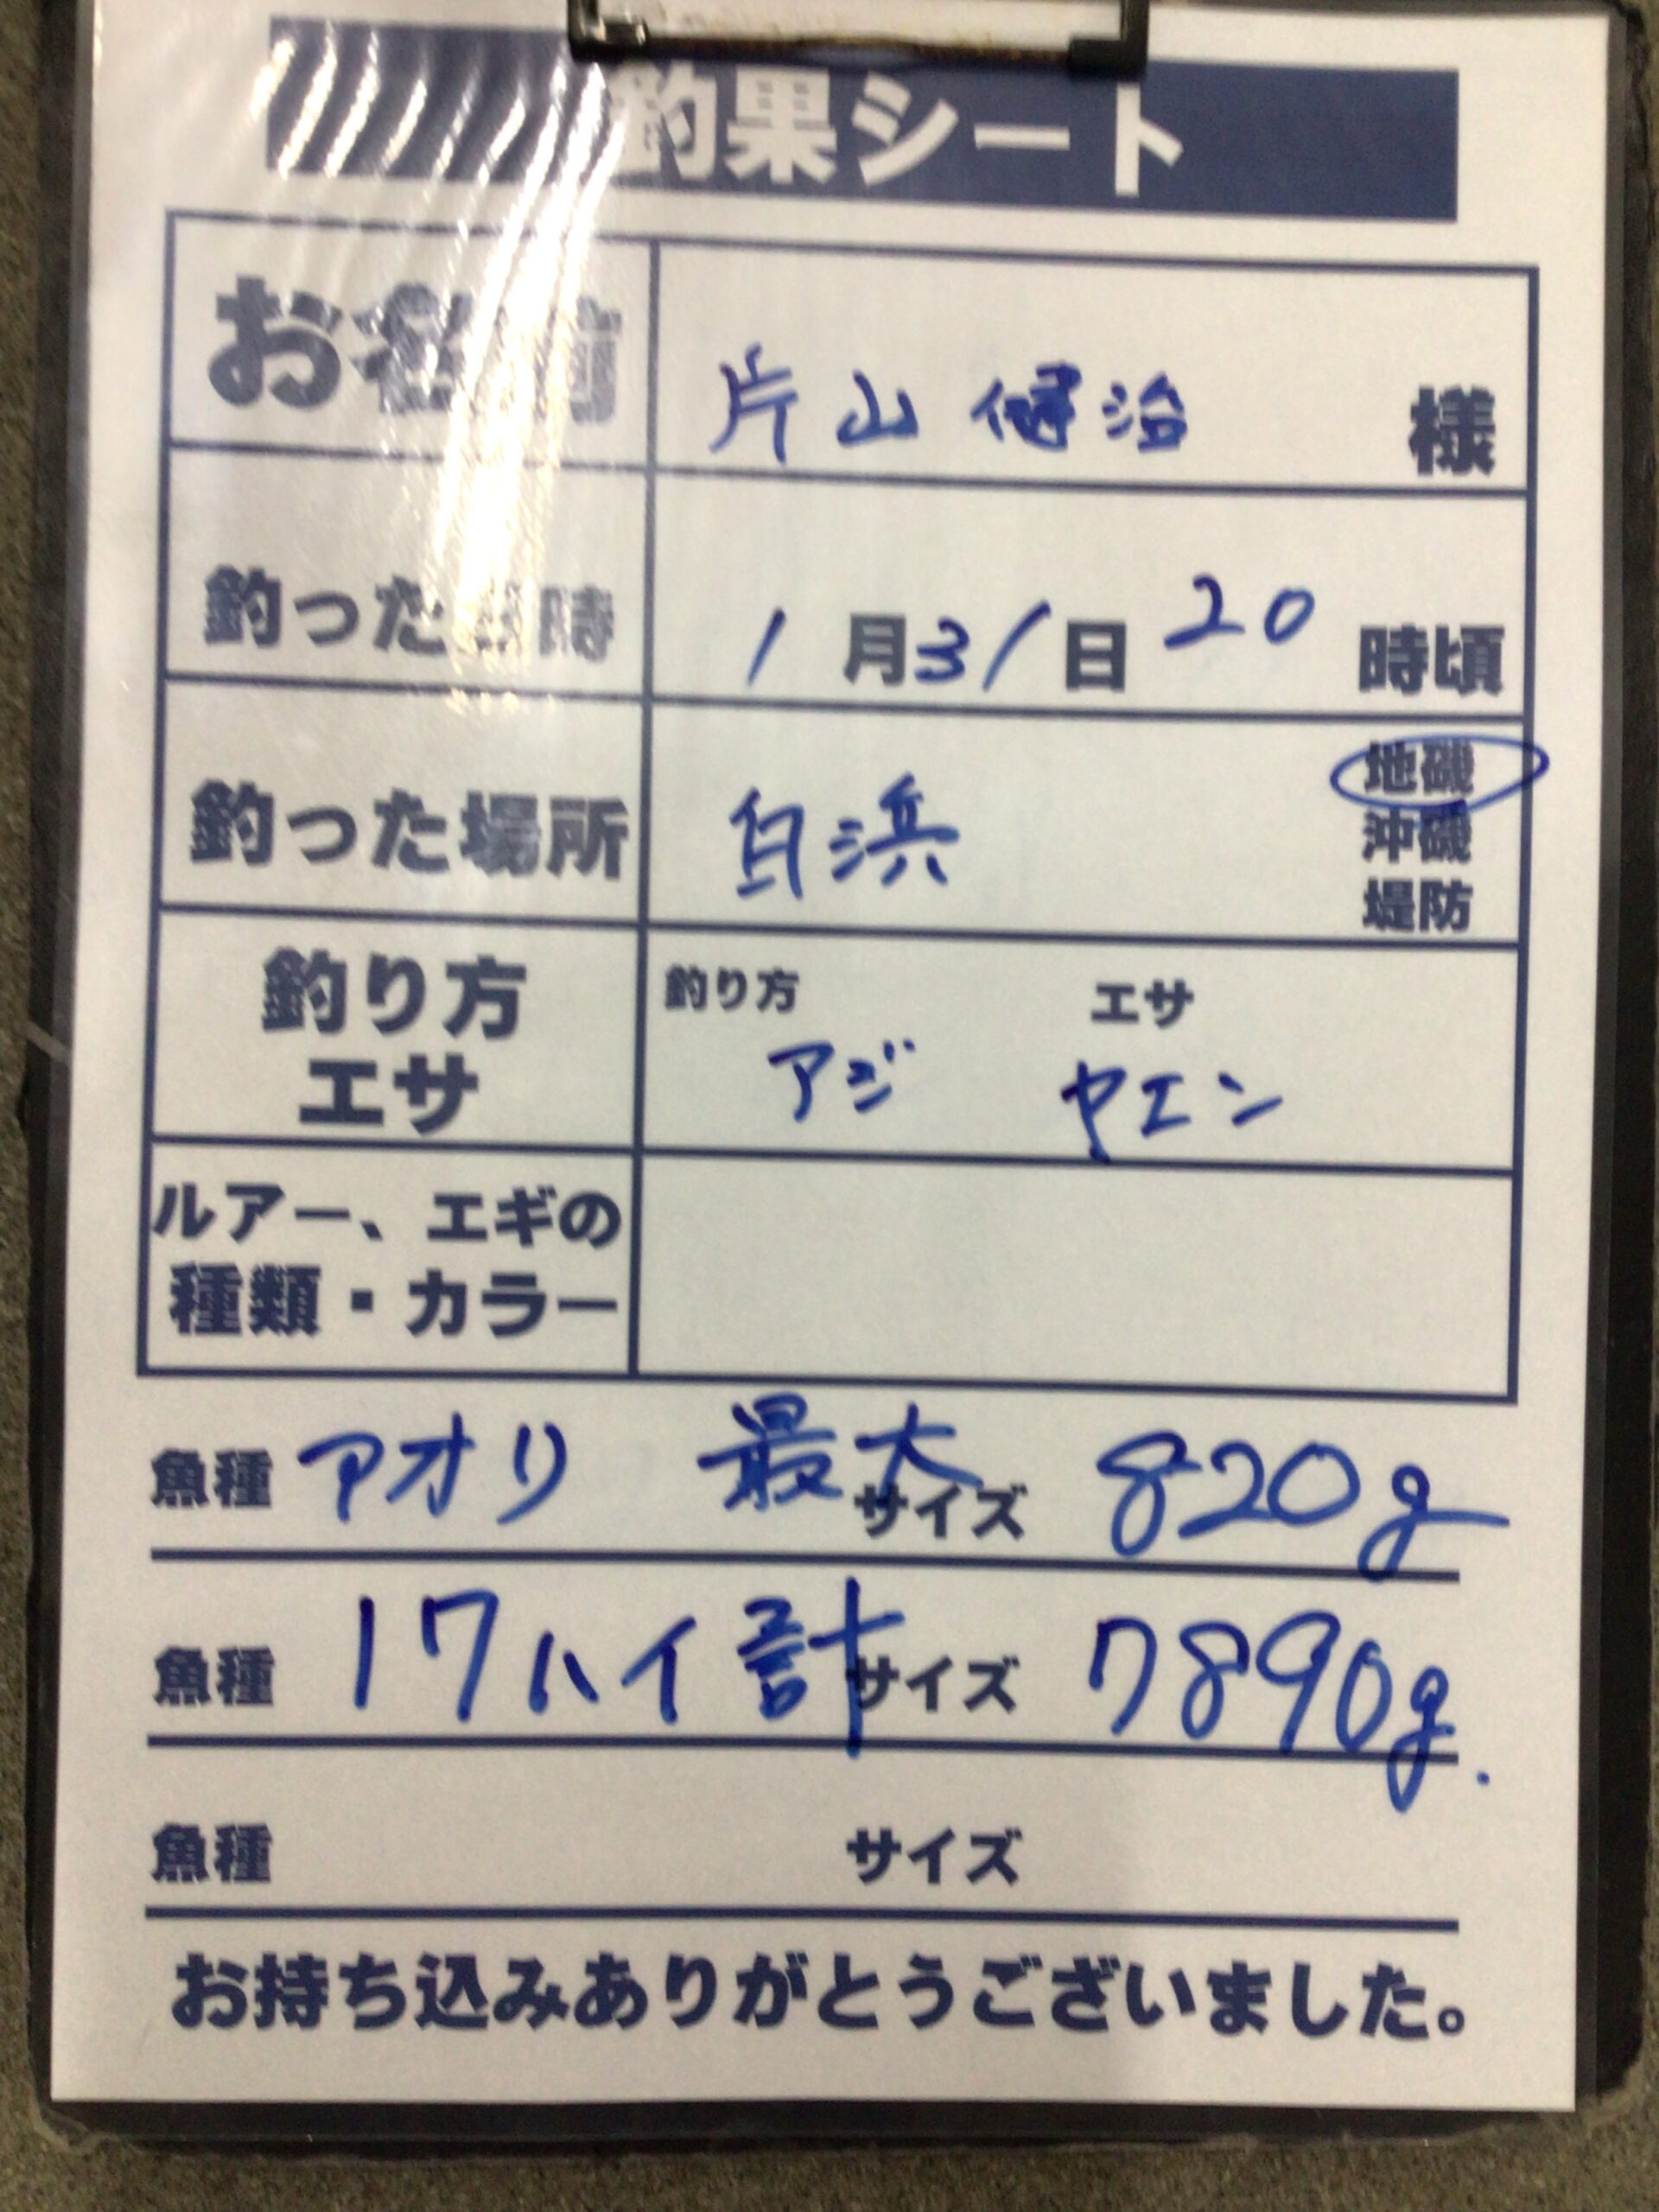 釣果シート
お名前 片山健治 様
釣った日時 1月31日 20時頃
釣った場所 白浜 地磯
沖磯
堤防
釣り方 エサ
釣り方
エサ
アジ ヤエン
ルアー、エギの
種類・カラー
魚種 アオリ 最大サイズ 820g
魚種 17ハイ計 サイズ 7890g.
魚種 サイズ
お持ち込みありがとうございました。